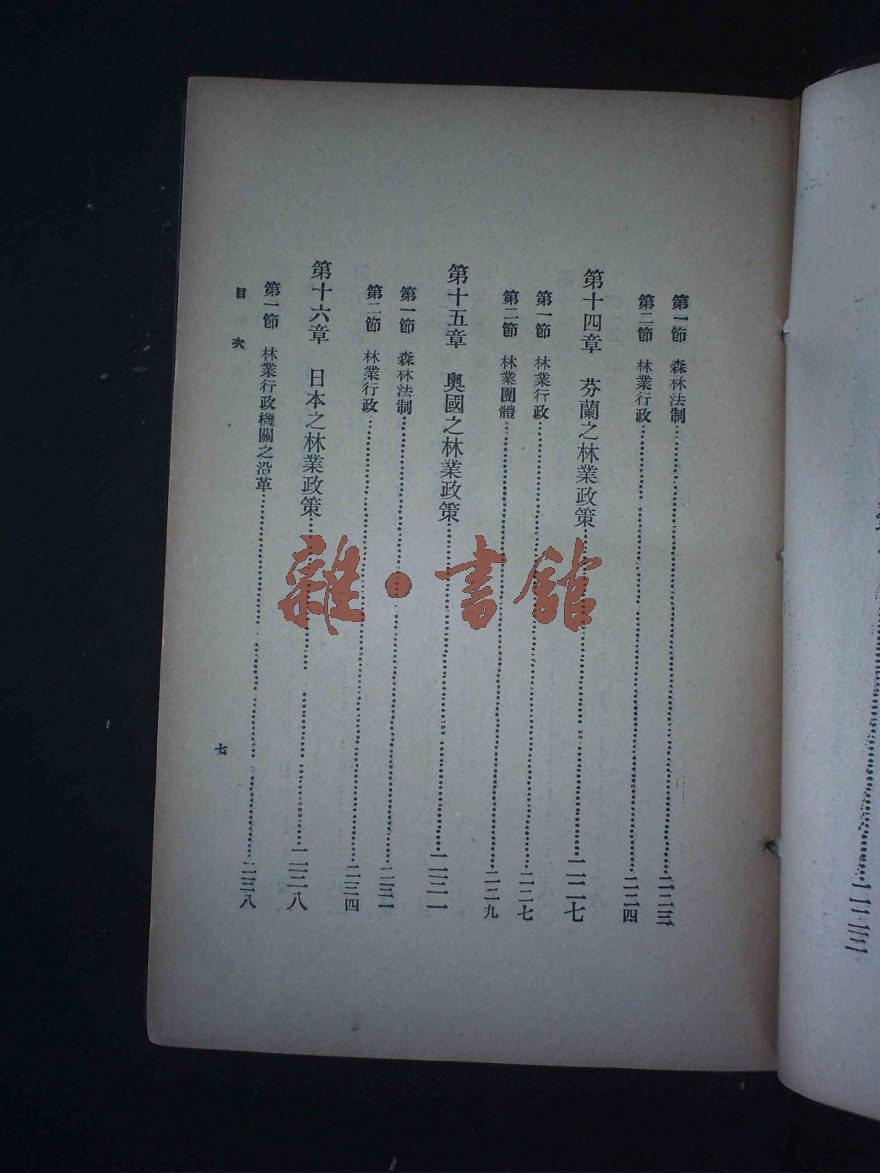 第一節 森林法制……二二三
第二節 林業行政……二二四
第十四章 芬蘭之林業政策……二二七
第一節 林業行政……二二七
第二節 林業團體……二二九
第十五章 奧國之林業政策……二三一
第一節 森林法制……二三一
第二節 林業行政……二三四
第十六章 日本之林業政策……二三八
第一節 林業行政機關之沿革……二三八
目 次
七
雜·書館